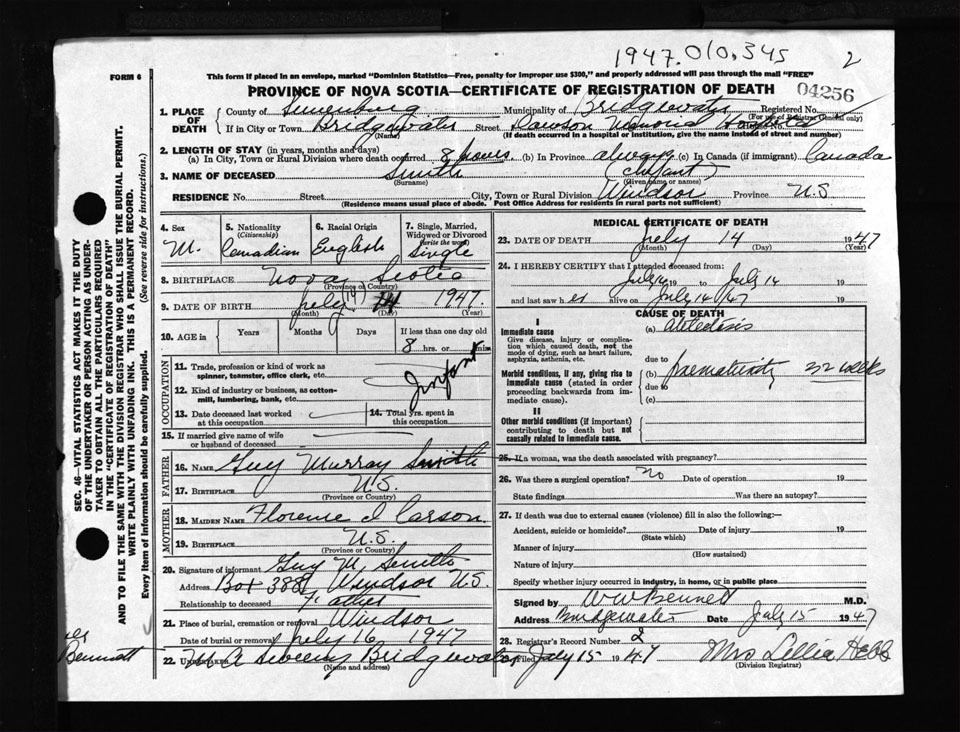 1947.010.345 2
FORM 6
This form if placed in an envelope, marked "Dominion Statistics—Free, penalty for improper use $300," and properly addressed will pass through the mail "FREE"
PROVINCE OF NOVA SCOTIA—CERTIFICATE OF REGISTRATION OF DEATH 04256
1. PLACE OF DEATH County of Lunenburg Municipality of Bridgewater Registered No.
(For use of Registrar General only)
If in City or Town Bridgewater Street Dawson Memorial Hospital No.
(Name) (If death occurred in a hospital or institution, give the name instead of street and number)
2. LENGTH OF STAY (in years, months and days)
(a) In City, Town or Rural Division where death occurred 8 hours. (b) In Province always (c) In Canada (if immigrant) Canada
3. NAME OF DECEASED Smith (Infant)
(Surname) (Given name or names)
RESIDENCE No. Street City, Town or Rural Division Windsor Province N.S.
(Residence means usual place of abode. Post Office Address for residents in rural parts not sufficient)
4. Sex M.
5. Nationality (Citizenship) Canadian
6. Racial Origin English
7. Single, Married, Widowed or Divorced (write the word) Single
8. BIRTHPLACE Nova Scotia
(Province or Country)
9. DATE OF BIRTH July 14 1947.
(Month) (Day) (Year)
10. AGE in Years Months Days If less than one day old
8 hrs. or min.
OCCUPATION
11. Trade, profession or kind of work as spinner, teamster, office clerk, etc.
Infant
12. Kind of industry or business, as cotton-mill, lumbering, bank, etc.
13. Date deceased last worked at this occupation
14. Total yrs. spent in this occupation
15. If married give name of wife or husband of deceased
FATHER
16. NAME Guy Murray Smith
17. BIRTHPLACE N.S.
(Province or Country)
MOTHER
18. MAIDEN NAME Florence I Carson.
19. BIRTHPLACE N.S.
(Province or Country)
20. Signature of informant Guy M. Smith
Address Box 388, Windsor N.S.
Relationship to deceased Father
21. Place of burial, cremation or removal Windsor
Date of burial or removal July 16 1947
22. UNDERTAKER M A Sweeny Bridgewater
(Name and address)
MEDICAL CERTIFICATE OF DEATH
23. DATE OF DEATH July 14 1947
(Month) (Day) (Year)
24. I HEREBY CERTIFY that I attended deceased from:
July 14 19 to July 14 19
and last saw alive on July 14/47 19
CAUSE OF DEATH
I
Immediate cause (a) Atelectasis
Give disease, injury or complication which caused death, not the mode of dying, such as heart failure, asphyxia, asthenia, etc.
due to
Morbid conditions, if any, giving rise to immediate cause (stated in order proceeding backwards from immediate cause).
(b) Prematurity 32 weeks
due to
(c)
II
Other morbid conditions (if important) contributing to death but not causally related to immediate cause.
25. If a woman, was the death associated with pregnancy?
26. Was there a surgical operation? no Date of operation 19
State findings Was there an autopsy?
27. If death was due to external causes (violence) fill in also the following:—
Accident, suicide or homicide? Date of injury 19
(State which)
Manner of injury
(How sustained)
Nature of injury
Specify whether injury occurred in industry, in home, or in public place
Signed by W W Bennett M.D.
Address Bridgewater Date July 15 1947
28. Registrar's Record Number 2
Filed July 15 1947 Mrs Lillia Hebb
(Division Registrar)
SEC. 46—VITAL STATISTICS ACT MAKES IT THE DUTY
OF THE UNDERTAKER OR PERSON ACTING AS UNDER-
TAKER TO OBTAIN ALL THE PARTICULARS REQUIRED
IN THE "CERTIFICATE OF REGISTRATION OF DEATH"
AND TO FILE THE SAME WITH THE DIVISION REGISTRAR WHO SHALL ISSUE THE BURIAL PERMIT.
WRITE PLAINLY WITH UNFADING INK. THIS IS A PERMANENT RECORD.
Every item of information should be carefully supplied. (See reverse side for instructions.)
Bennett